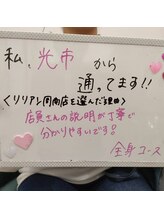 私、光市から
通ってます!!
<リリアン周南店を選んだ理由>
店員さんの説明が丁寧で
分かりやすいです!
全身コース